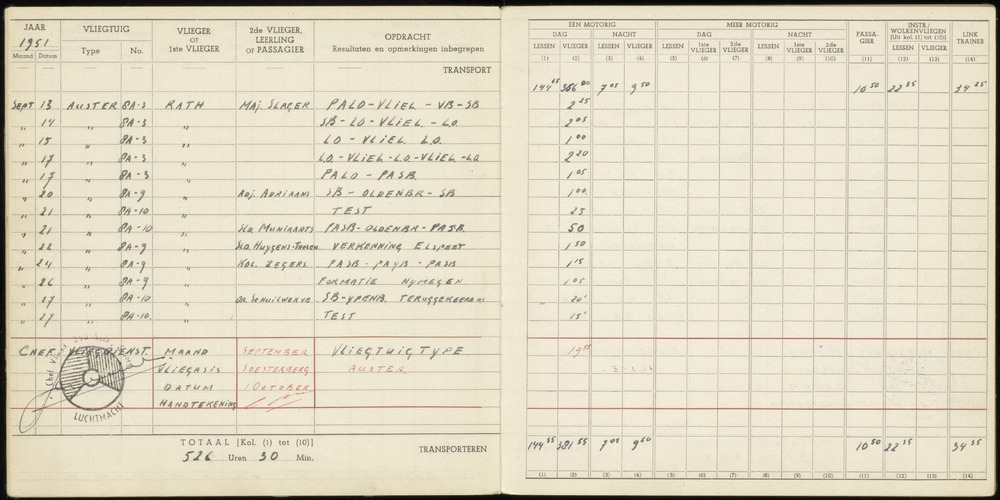 JAAR
1951
Maand Datum
VLIEGTUIG
Type No.
VLIEGER
OF
1ste VLIEGER
2de VLIEGER,
LEERLING
OF PASSAGIER
OPDRACHT
Resultaten en opmerkingen inbegrepen
TRANSPORT
EEN MOTORIG
DAG NACHT
LESSEN VLIEGER LESSEN VLIEGER
(1) (2) (3) (4)
MEER MOTORIG
DAG NACHT
LESSEN 1ste VLIEGER 2de VLIEGER LESSEN 1ste VLIEGER 2de VLIEGER
(5) (6) (7) (8) (9) (10)
PASSA-
GIER
(11)
INSTR./
WOLKENVLIEGEN
[Uit kol. (1) tot (10)]
LESSEN VLIEGER
(12) (13)
LINK
TRAINER
(14)
144 35 366 00 7 05 9 50 10 50 22 35 34 35
SEPT 13 AUSTER 8A-3 RATH MAJ. SLAGER PALO-VLIEL - VB-SB 2 25
" 14 " 8A-3 " SB-LO-VLIEL - LO 2 05
" 15 " 8A-3 " LO-VLIEL LO 1 00
" 17 " 8A-3 " LO-VLIEL-LO-VLIEL-LO 2 20
" 17 " 8A-3 " PALO-PASB 1 05
" 20 " 8A-9 " ADJ. ADRIAANS SB-OLDENBR-SB 1 00
" 21 " 8A-10 " TEST 25
" 21 " 8A-10 " PASB-OLDENBR-PASB 50
" 22 " 8A-9 " HUYGENS- VERKENNING ELSPEET 1 50
" 24 " 8A-9 " KOL. ZEGERS PASB-PAYB-PASB 1 15
" 26 " 8A-9 " FORMATIE NYMEGEN 1 05
" 27 " 8A-10 " SB-YPENB. 20'
" 27 " 8A-10 " TEST 15'
CHEF VLIEGDIENST. MAAND SEPTEMBER VLIEGTUIG TYPE 19 55
VLIEGBASIS SOESTERBERG AUSTER
DATUM 1 OCTOBER
HANDTEKENING
LUCHTMACHT
TOTAAL [Kol. (1) tot (10)]
526 Uren 30 Min.
TRANSPORTEREN
144 35 381 55 7 05 9 50 10 50 22 35 34 35
(1) (2) (3) (4) (5) (6) (7) (8) (9) (10) (11) (12) (13) (14)